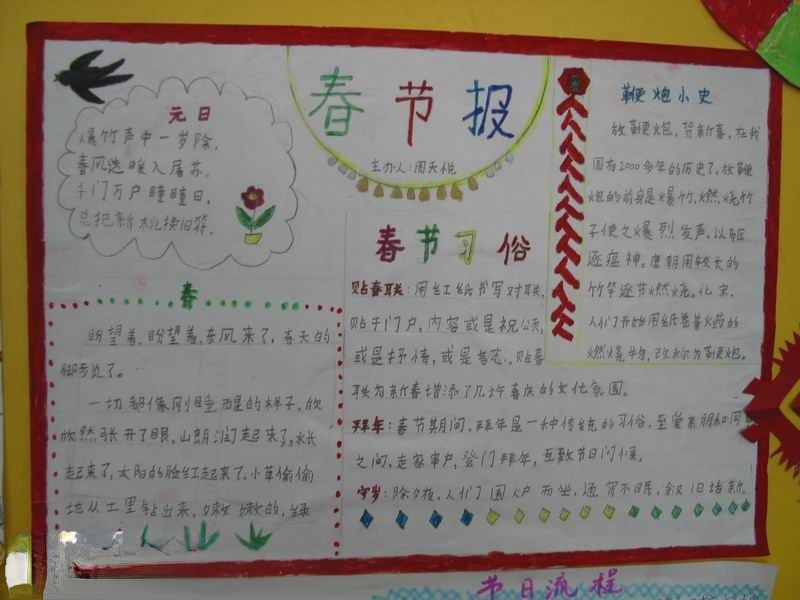 春节报
主办人:周天悦
元日
爆竹声中一岁除,
春风送暖入屠苏.
千门万户曈曈日,
总把新桃换旧符.
春
盼望着,盼望着,东风来了,春天的
脚步近了。
一切都像刚睡醒的样子,欣
欣然张开了眼。山朗润起来了,水长
起来了,太阳的脸红起来了。小草偷偷
地从土里钻出来,嫩嫩的,绿
春节习俗
贴春联:用红纸书写对联,
贴于门户,内容或是祝颂,
或是抒情,或是言志。贴春
联为新春增添了几许喜庆的文化氛围。
拜年:春节期间,拜年是一种传统的习俗,至爱亲朋和同
之间,走家串户,登门拜年,互致节日问候。
守岁:除夕夜,人们围炉而坐,通宵不眠,叙旧话新。
鞭炮小史
放鞭炮,贺新春,在我
国有2000多年的历史了。放鞭
炮的前身是爆竹,燃烧竹
子使之爆烈发声,以驱
逐瘟神。唐朝用较长的
竹竿逐节燃烧。北宋,
人们开始用纸卷着火药的
燃烧物,改称为鞭炮。
节日流程